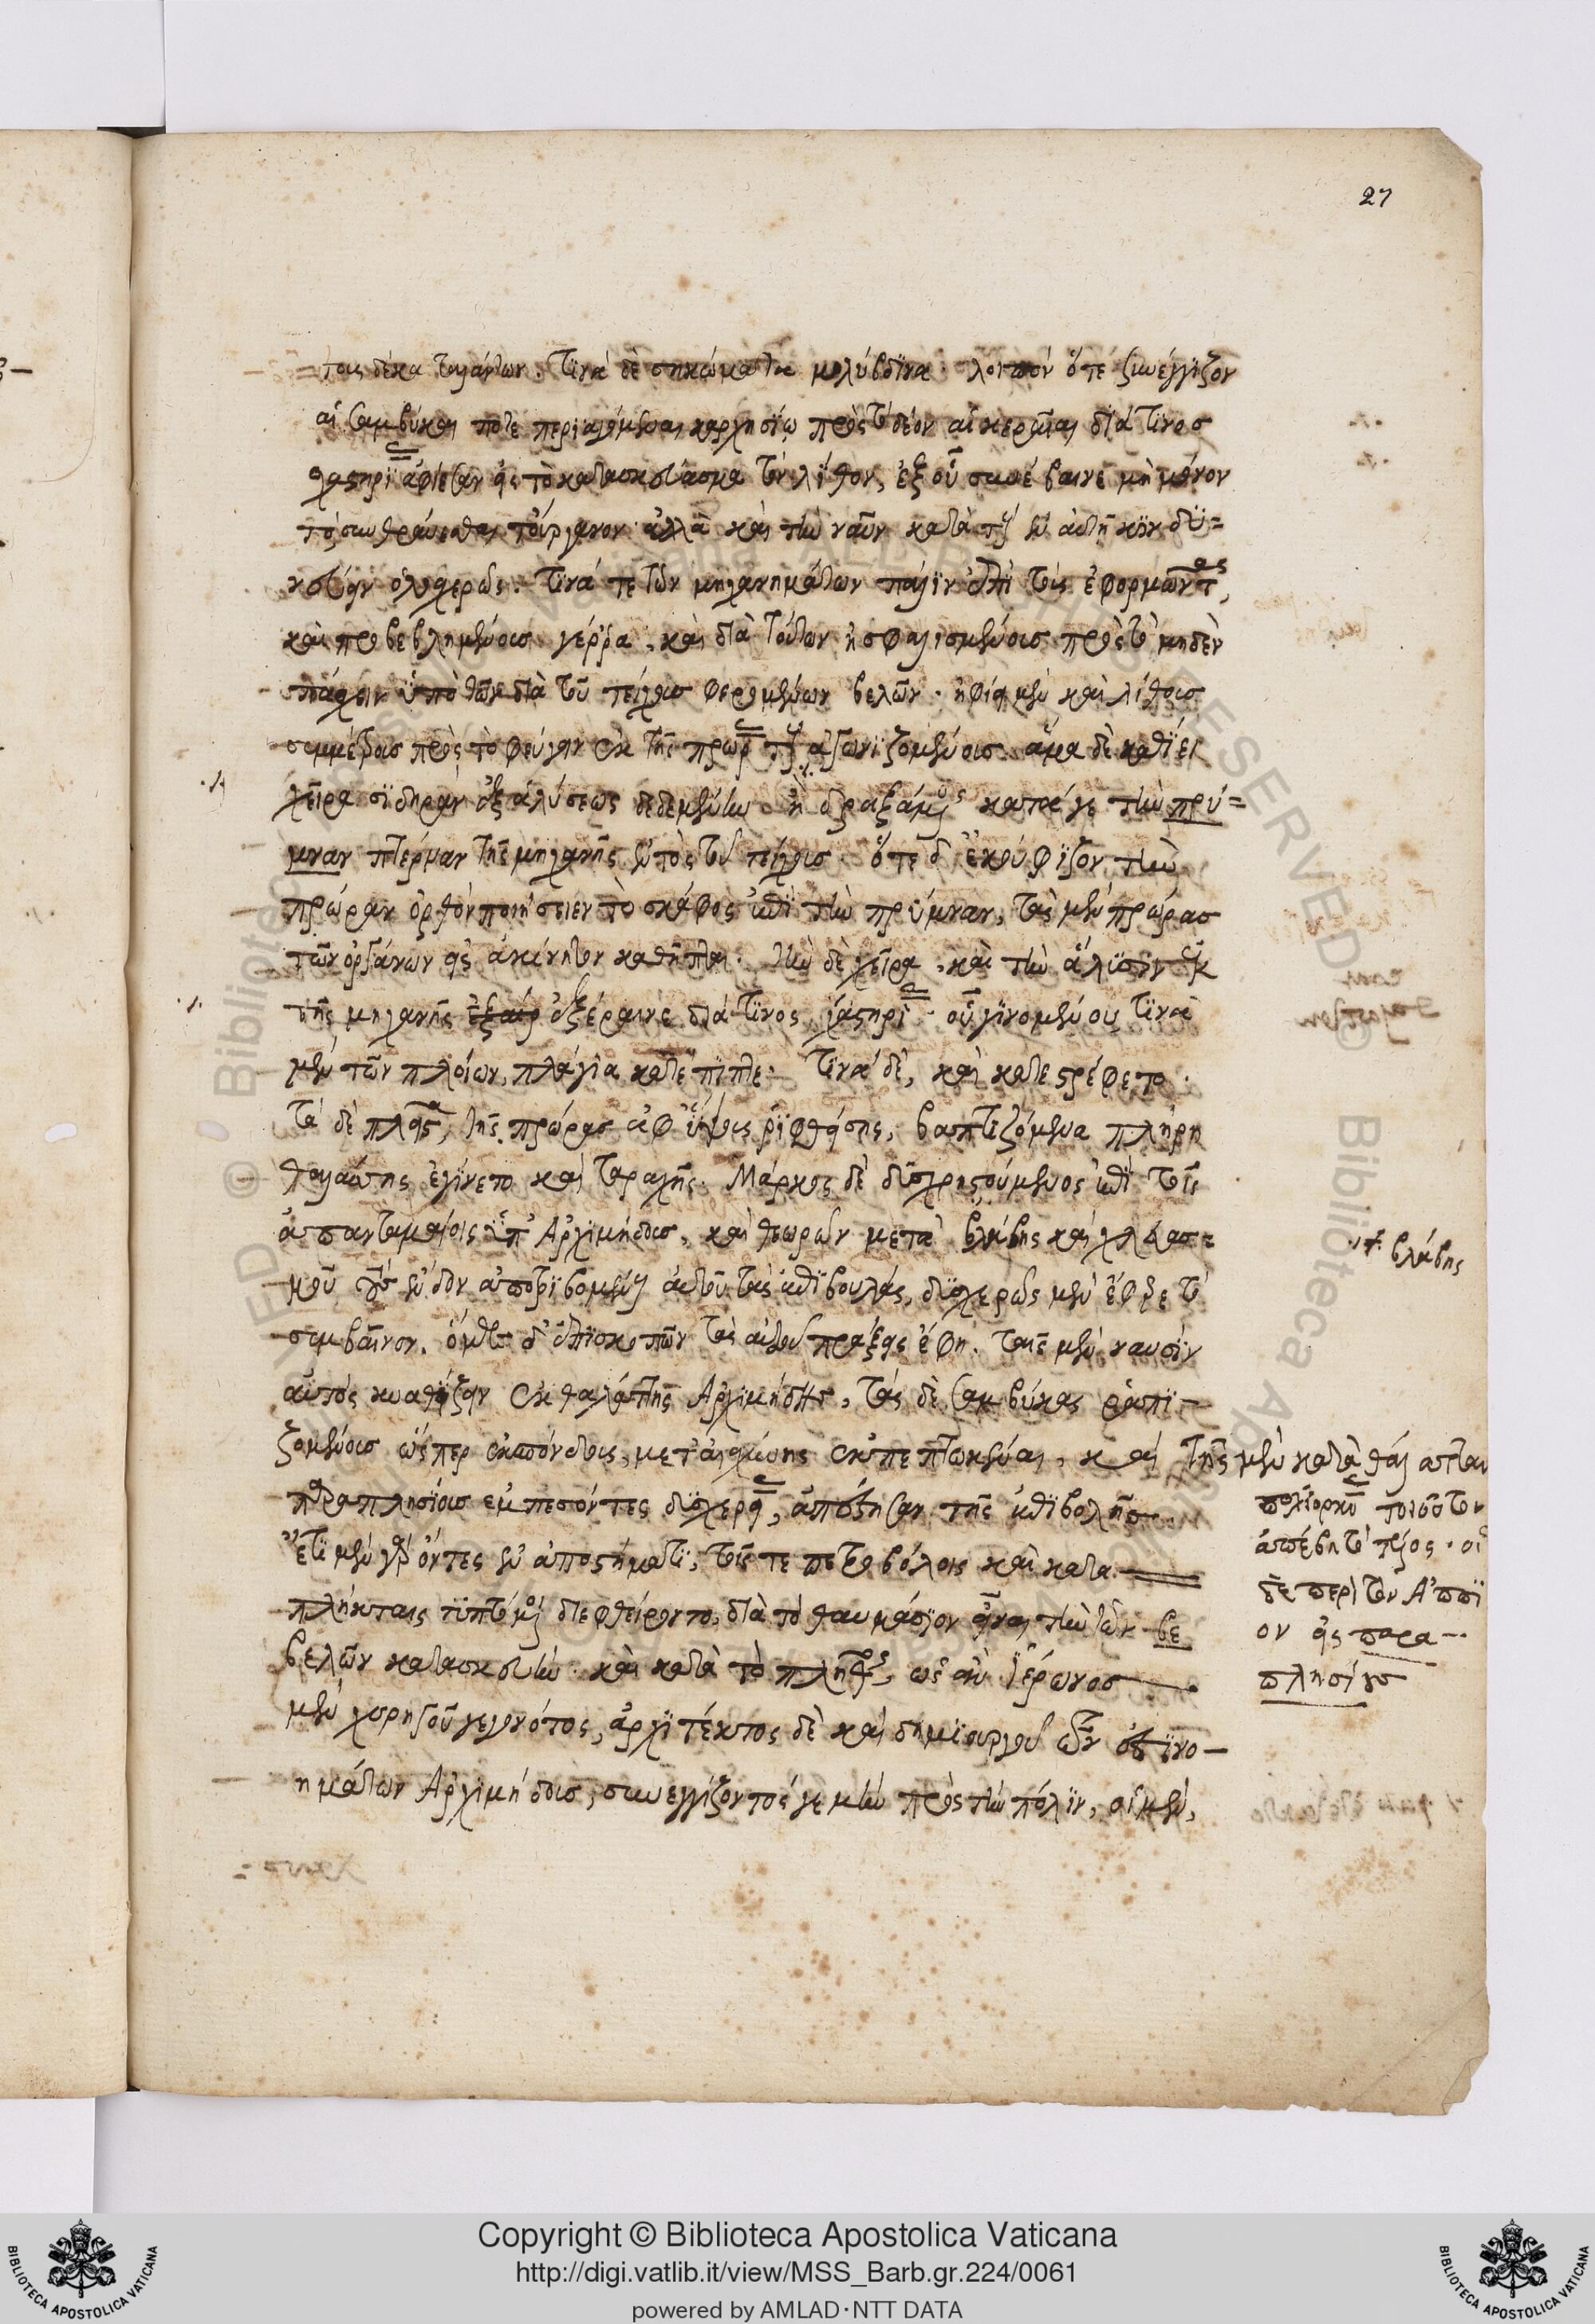 27
τους δέκα ταλάντων. τινὰ δὲ σηκώματα μολύβδϊνα. λοιπόν ὅτε συνέγγιζον
αἱ σαμβύκαι τότε περιαγόμεναι καρχησίῳ πρὸς τὸ δέον αἱ κεραῖαι διά τινος
χαστηρί ἀφίεσαν εἰς τὸ κατασκεύασμα τὸν λίθον, ἐξ οὗ συνέβαινε μὴ μόνον
τὸ συνθραύεσθαι τοὔργανον ἀλλὰ καὶ τὴν ναῦν καὶ τοὺς ἐν αὐτῇ κιν δυ=
νεύειν ὁλοσχερῶς. τινά τε τῶν μηχανημάτων πάλιν ἐπὶ τοὺς ἐφορμῶντας,
καὶ προβεβλημένους γέρρα, καὶ διὰ τούτων ἠσφαλισμένους πρὸς τὸ μηδὲν
πάσχειν ὑπὸ τῶν διὰ τοῦ τείχους φερομένων βελῶν. ἠφίει μὲν καὶ λίθους
συμμέτρους πρὸς τὸ φεύγειν ἐκ τῆς πρώρας τοὺς ἀγωνιζομένους. ἅμα δὲ καθίει
χεῖρα σιδηρᾶν ἐξ ἁλύσεως δεδεμένην ᾗ δραξάμενος κατάγε τὴν πρύ=
μναν πτέρναν τῆς μηχανῆς ἐντὸς τοῦ τείχους. ὅτε δ' ἐκούφιζον τὴν
πρώραν ὀρθὸν ποιήσειεν τὸ σκάφος ἐπὶ τὴν πρύμναν, τὰς μὲν πρώρας
τῶν ὀργάνων εἰς ἀκίνητον καθῆπται. τὴν δὲ χεῖρα, καὶ τὴν ἅλυσιν ἐκ
τῆς μηχανῆς ἐξαίρ ἐξέραινε διά τινος χαστηρί. οὗ γινομένου τινὰ
μὲν τῶν πλοίων, πλάγια κατέπιπτε. τινὰ δὲ, καὶ κατεστρέφετο.
τὰ δὲ πλεῖστα, τῆς πρώρας ἀφ' ὕψους ῥιφθείσης, βαπτιζόμενα πλήρη
θαλάττης ἐγίνετο καὶ ταραχῆς. Μάρκος δὲ δυσχρηστούμενος ἐπὶ τοῖς
ἀπαντωμένοις ὑπ' Ἀρχιμήδους, καὶ θεωρῶν μετὰ βλάβης καὶ χλευασ=
μοῦ τοὺς ἔνδον ἀποτριβομένους αὐτοῦ τὰς ἐπιβουλὰς, δυσχερῶς μὲν ἔφερε τὸ
συμβαῖνον. ὅμως δ' ἐπισκώπτων τὰς αὑτοῦ πράξεις ἔφη. ταῖς μὲν ναυσὶν
αὐτὸς κυαθίζειν ἐκ θαλάττης Ἀρχιμήδης, τὰς δὲ σαμβύκας ῥαπι-
ζομένους ὥσπερ ἐκσπόνδους, μετ' αἰσχύνης ἐκπεπτωκέναι. καὶ
παραπλησίοις ἐμπεσόντες δυσχερείαις, ἀπέστησαν τῆς ἐπιβολῆς.
ἔτι μὲν γὰρ ὄντες ἐν ἀποστήματι, τοῖς τε πετροβόλοις καὶ κατα-
πλήκταις τυπτόμενοι διεφθείροντο, διὰ τὸ θαυμάσιον εἶναι τὴν τῶν βε
βελῶν κατασκευήν. καὶ κατὰ τὸ πλῆθος, ὡς ἂν Ἱέρωνος
μὲν χορηγοῦ γεγονότος, ἀρχιτέκτος δὲ καὶ δημιουργοῦ τῶν ἐπινο-
ημάτων Ἀρχιμήδους, συνεγγίζοντός γε μὴν πρὸς τὴν πόλιν, οἱ μὲν,
βλάβης
τῆς μὲν κατὰ θάλατταν
πολιορκίας τοιοῦτον
ἀπέβη τὸ τέλος. οἱ
δὲ περὶ τὸν Ἄππι
ον εἰς παρα-
πλησίους
Copyright © Biblioteca Apostolica Vaticana
http://digi.vatlib.it/view/MSS_Barb.gr.224/0061
powered by AMLAD·NTT DATA
BIBLIOTECA APOSTOLICA VATICANA
BIBLIOTECA APOSTOLICA VATICANA